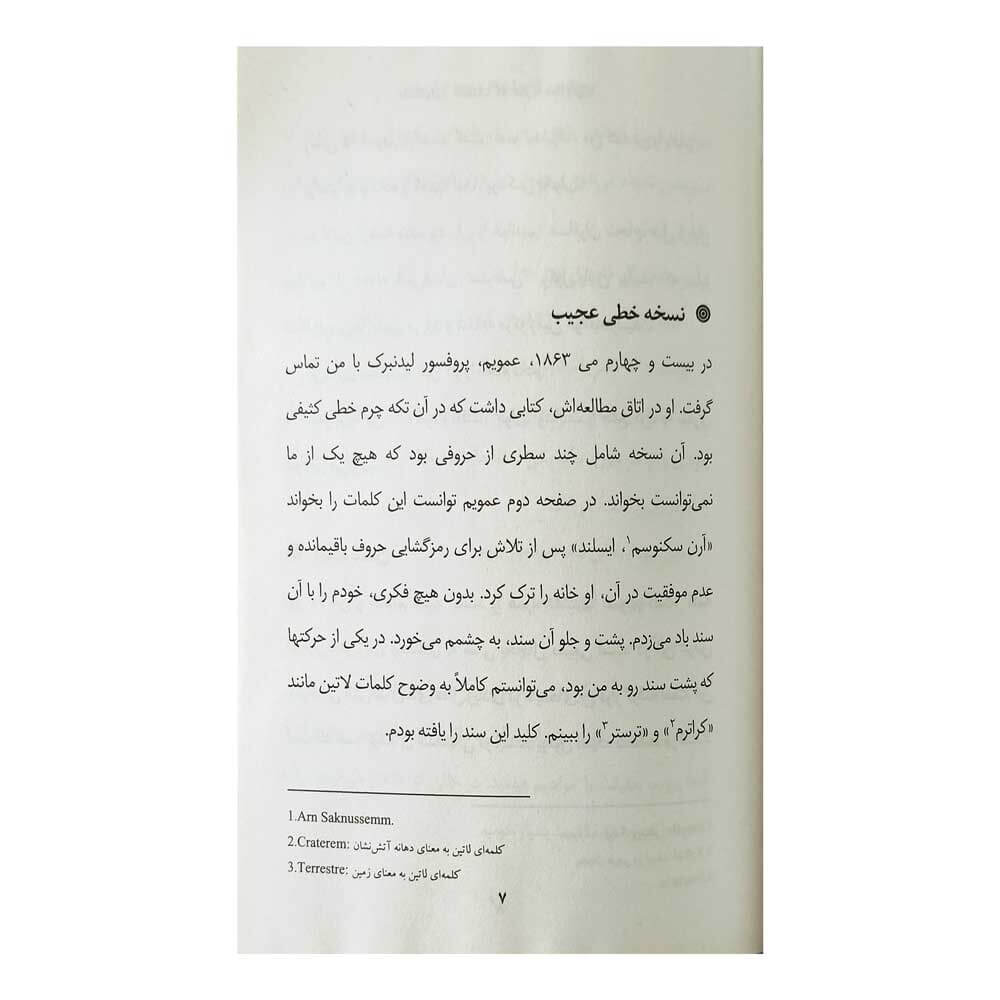 نسخه خطی عجیب
در بیست و چهارم می ۱۸۶۳، عمویم، پروفسور لیدنبرک با من تماس
گرفت. او در اتاق مطالعه‌اش، کتابی داشت که در آن تکه چرم خطی کثیفی
بود. آن نسخه شامل چند سطری از حروفی بود که هیچ یک از ما
نمی‌توانست بخواند. در صفحه دوم عمویم توانست این کلمات را بخواند
«آرن سکنوسم۱، ایسلند» پس از تلاش برای رمزگشایی حروف باقیمانده و
عدم موفقیت در آن، او خانه را ترک کرد. بدون هیچ فکری، خودم را با آن
سند باد می‌زدم. پشت و جلو آن سند، به چشمم می‌خورد. در یکی از حرکتها
که پشت سند رو به من بود، می‌توانستم کاملاً به وضوح کلمات لاتین مانند
«کراترم۲» و «ترستر۳» را ببینم. کلید این سند را یافته بودم.
1.Arn Saknussemm.
2.Craterem: کلمه‌ای لاتین به معنای دهانه آتش‌نشان
3.Terrestre: کلمه‌ای لاتین به معنای زمین
۷